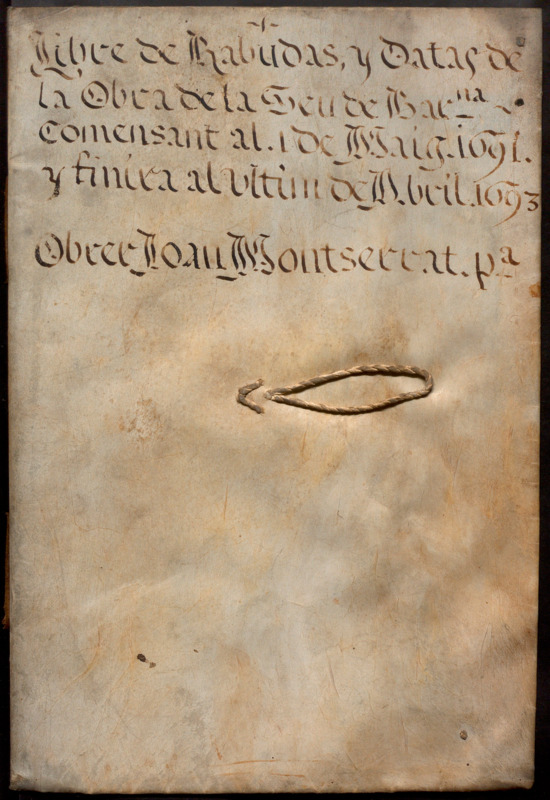 Libre de Rabudas, y Datas de
la Obra de la Seu de Barna
Comensant al. 1 de Maig. 1691.
y finira al ultim de Abril. 1693
Obrer Joan Montserrat. pa